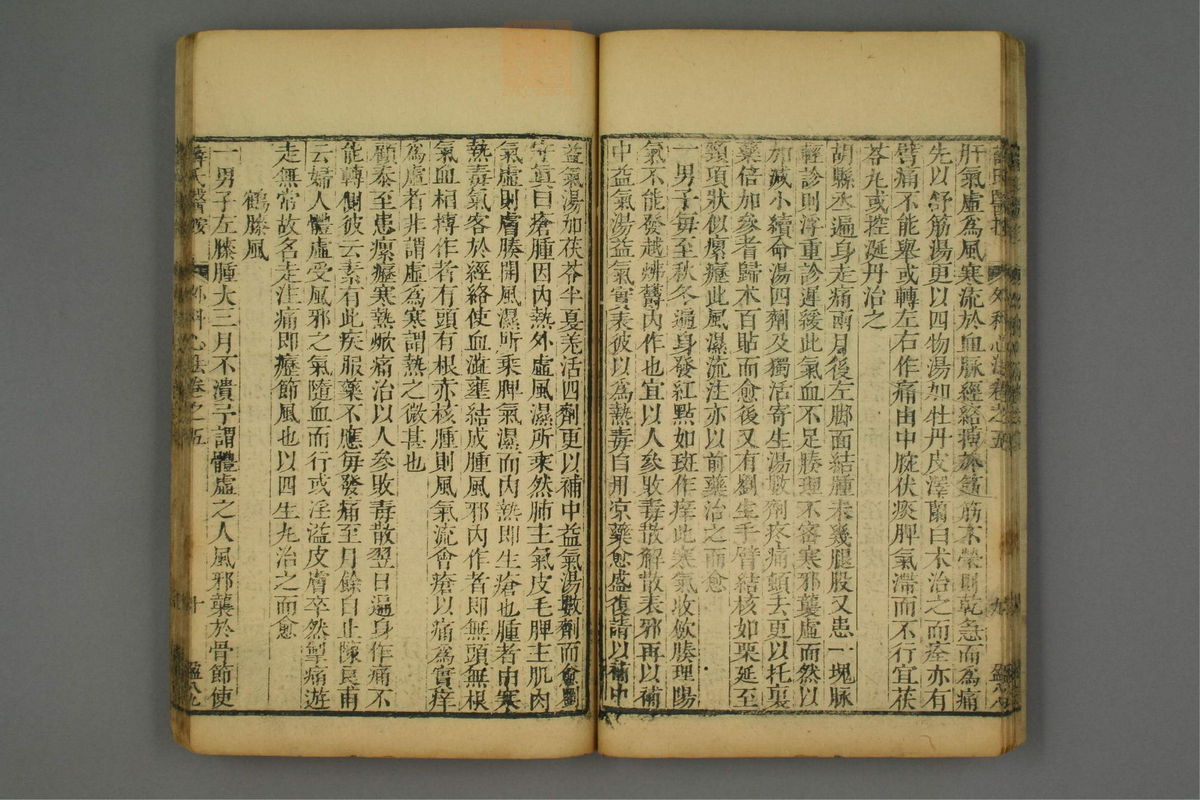 肝氣虛爲風寒流於血脉經絡搏於筋筋不榮則乾急而爲痛
先以舒筋湯更以四物湯加牡丹皮澤蘭白术治之而痊亦有
臂痛不能舉或轉左右作痛由中脘伏痰脾氣滯而不行宜茯
苓丸或控涎丹治之
胡縣丞遍身走痛兩月後左脚面結腫未幾腿股又患一塊脉
輕診則浮重診遲緩此氣血不足腠理不密寒邪襲虛而然以
加减小續命湯四劑及獨活寄生湯數劑疼痛頓去更以托裏
藥倍加參耆歸术百貼而愈後又有劉生手臂結核如栗延至
頸項狀似瘰癧此風濕流注亦以前藥治之而愈
一男子每至秋冬遍身發紅點如斑作痒此寒氣收歛腠理陽
氣不能發越怫鬱内作也宜以人參敗毒散解散表邪再以補
中益氣湯益氣實表彼以爲熱毒自用凉藥愈盛復請以補中
薛氏醫按 外科心法卷之五 九
益氣湯加茯苓半夏羌活四劑更以補中益氣湯數劑而愈劉
守眞曰瘡腫因内熱外虛風濕所乘然肺主氣皮毛脾主肌肉
氣虛則膚腠開風濕所乘脾氣濕而内熱即生瘡也腫者由寒
熱毒氣客於經絡使血澁壅結成腫風邪内作者即無頭無根
氣血相搏作者有頭有根亦核腫則風氣流會瘡以痛爲實痒
爲虛者非謂虛爲寒謂熱之微甚也
顧泰至患瘰癧寒熱焮痛治以人參敗毒散翌日遍身作痛不
能轉側彼云素有此疾服藥不應每發痛至月餘自止陳良甫
云婦人體虛受風邪之氣隨血而行或淫溢皮膚卒然掣痛遊
走無常故名走注痛即癧節風也以四生丸治之而愈
鶴膝風
一男子左膝腫大三月不潰予謂體虛之人風邪襲於骨節使
薛氏醫按 外科心法卷之五 十